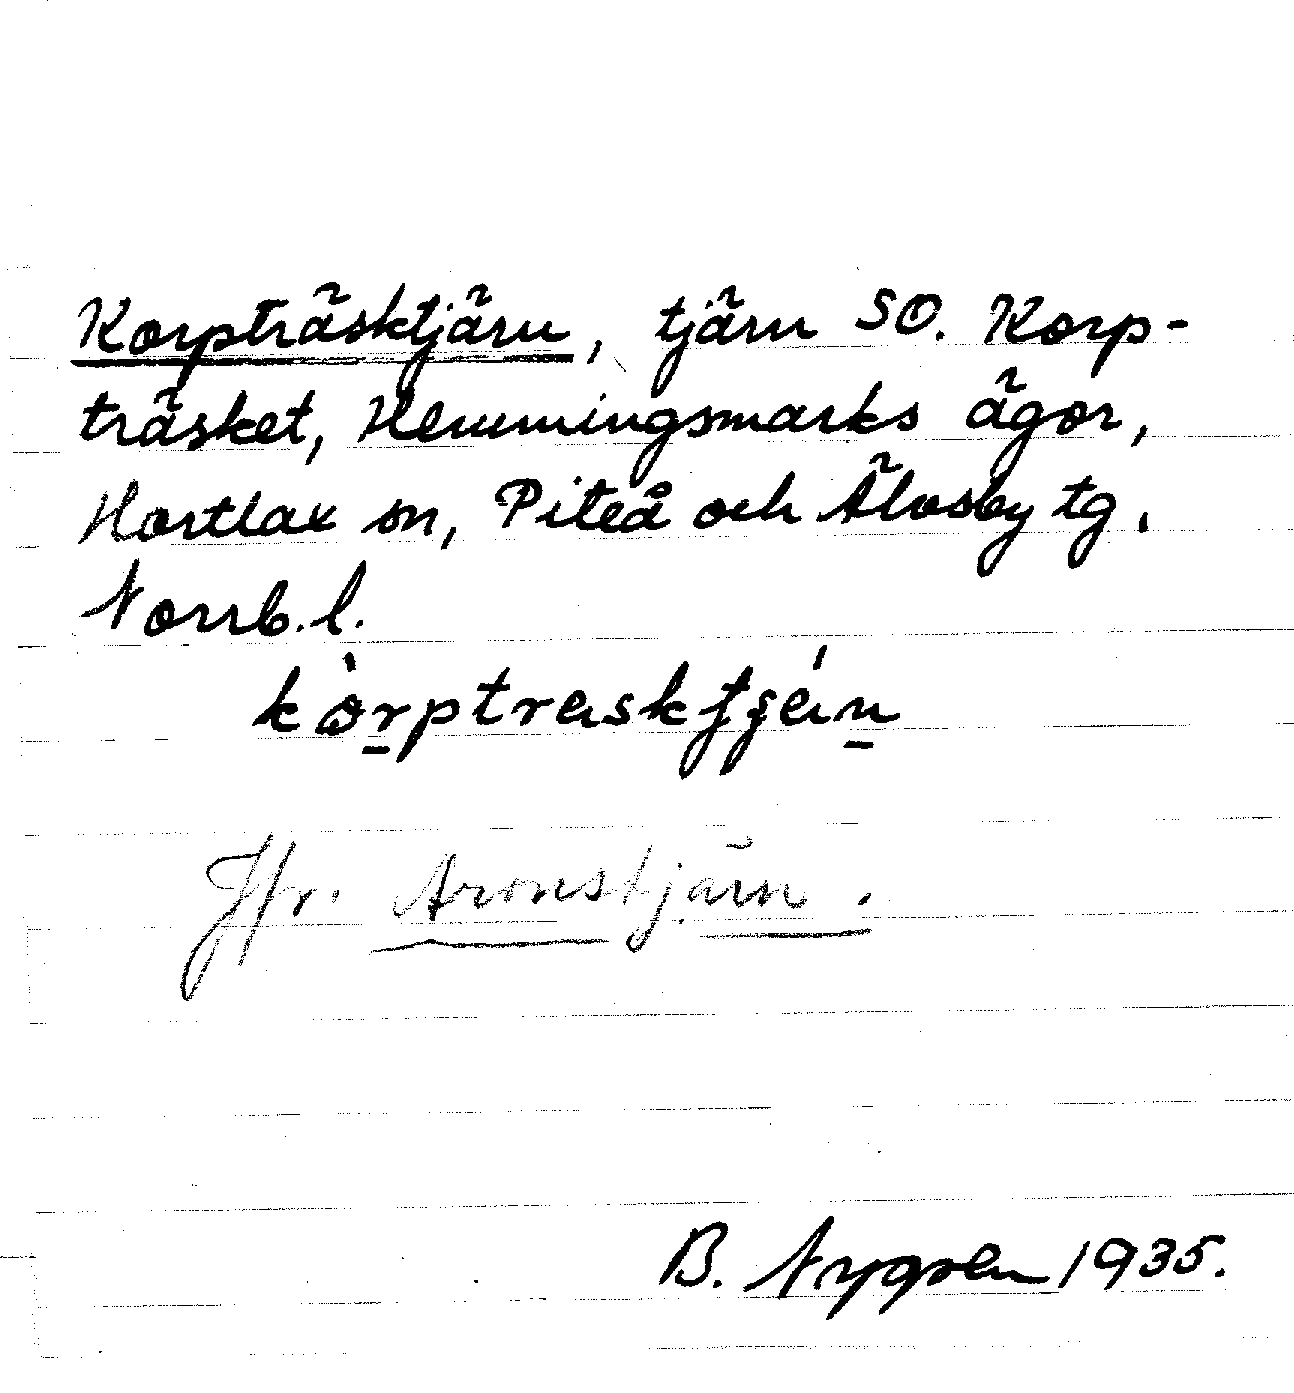 Korpträsktjärn, tjärn SO. Korp-
träsket, Hemmingsmarks ägor,
Hortlax sn, Piteå och Älvsby tg.
Norrb. l.
Jfr. Aronstjärn.
B. Nygren 1935.